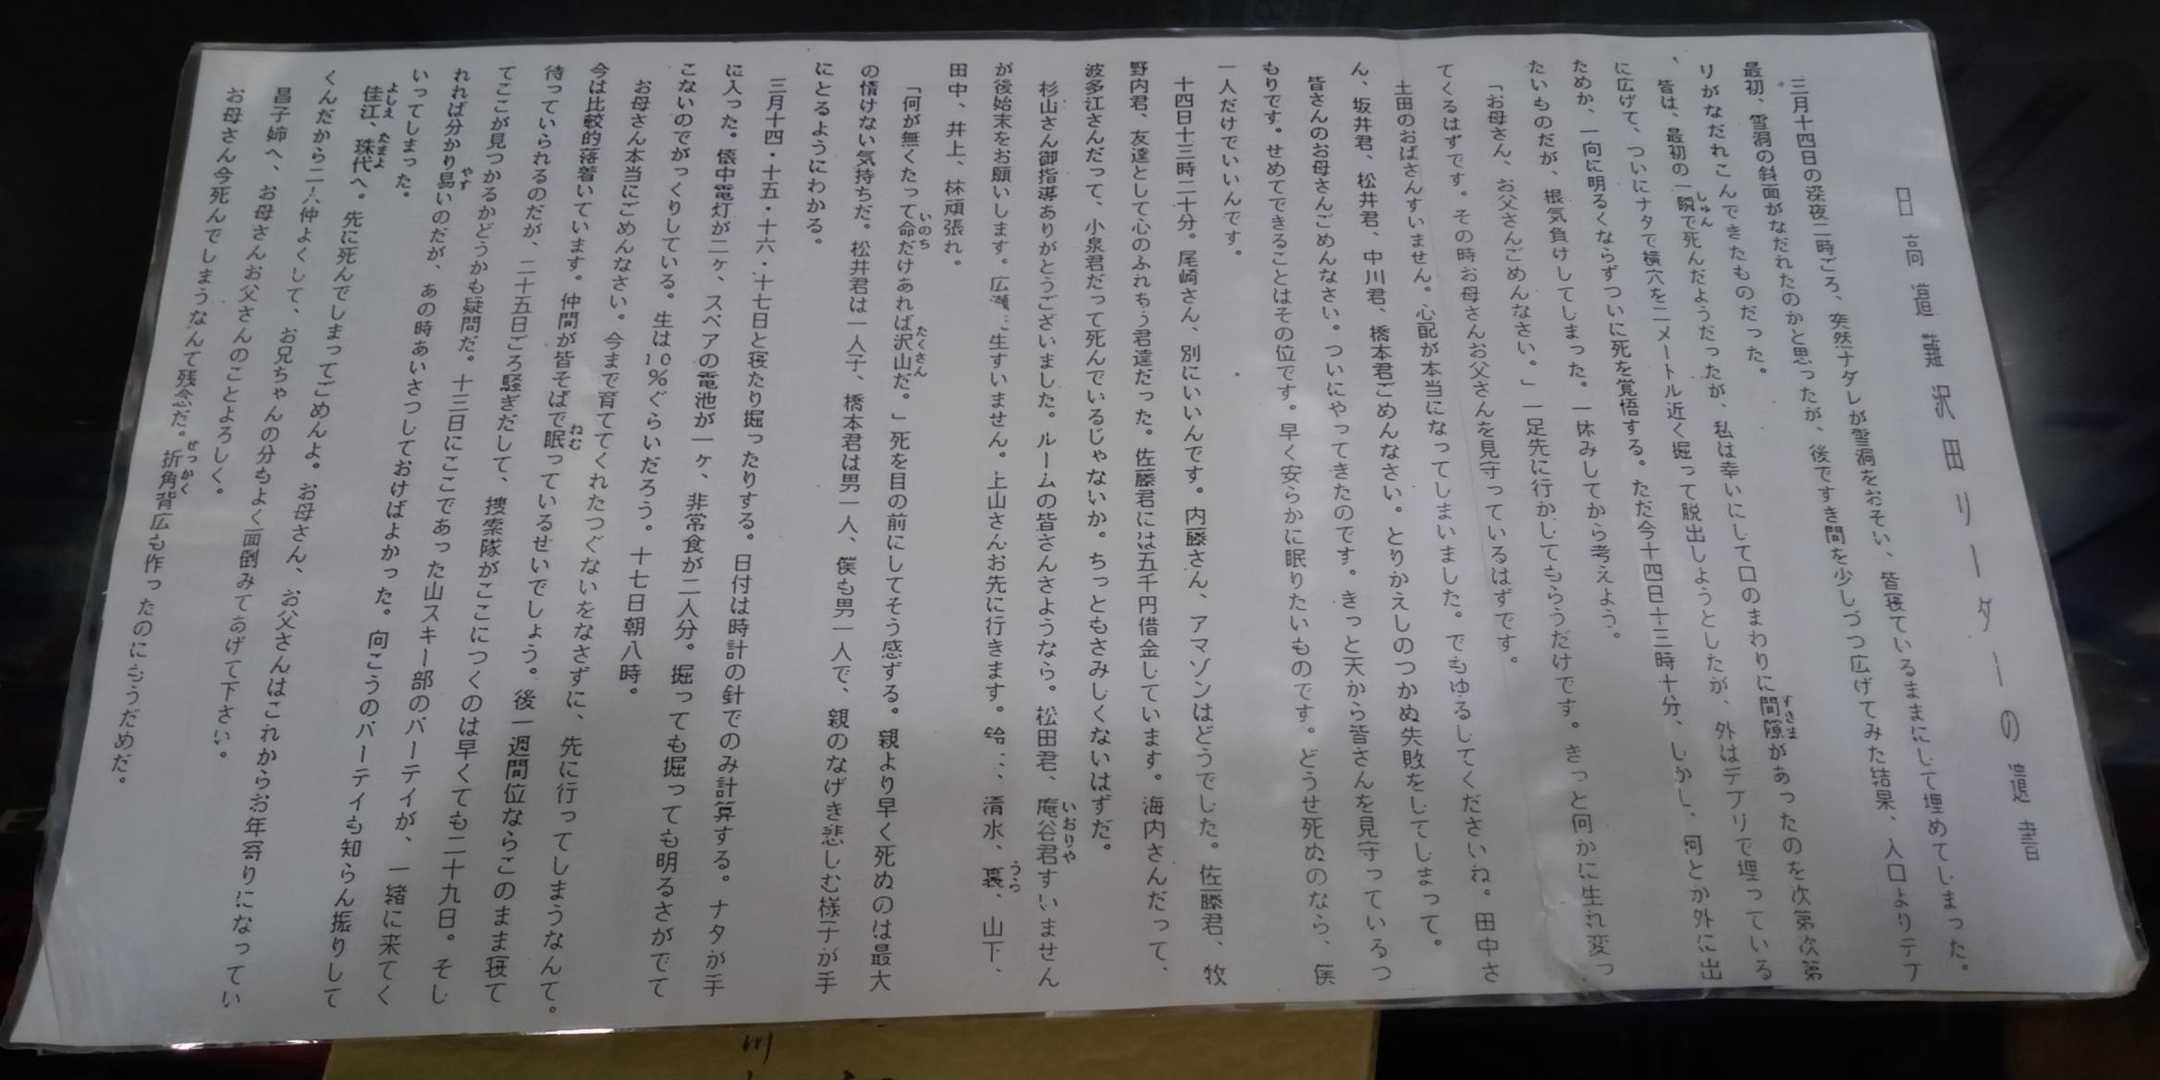 日高遭難沢田リーダーの遺書
三月十四日の深夜二時ごろ、突然ナダレが雪洞をおそい、皆寝ているままにして埋めてしまった。
最初、雪洞の斜面がなだれたのかと思ったが、後ですき間を少しづつ広げてみた結果、入口よりデブ
リがなだれこんできたものだった。
皆は、最初の一瞬で死んだようだったが、私は幸いにして口のまわりに間隙があったのを次第次第
に広げて、ついにナタで横穴を二メートル近く掘って脱出しようとしたが、外はデブリで埋っている
ためか、一向に明るくならずついに死を覚悟する。ただ今十四日十三時十分、しかし、何とか外に出
たいものだが、根気負けしてしまった。一休みしてから考えよう。
「お母さん、お父さんごめんなさい。」一足先に行かしてもらうだけです。きっと何かに生れ変っ
てくるはずです。その時お母さんお父さんを見守っているはずです。
土田のおばさんすいません。心配が本当になってしまいました。でもゆるしてくださいね。田中さ
ん、坂井君、松井君、中川君、橋本君ごめんなさい。とりかえしのつかぬ失敗をしてしまって。
皆さんのお母さんごめんなさい。ついにやってきたのです。きっと天から皆さんを見守っているつ
もりです。せめてできることはその位です。早く安らかに眠りたいものです。どうせ死ぬのなら、僕
一人だけでいいんです。
十四日十三時二十分。尾崎さん、別にいいんです。内藤さん、アマゾンはどうでした。佐藤君、牧
野内君、友達として心のふれちう君達だった。佐藤君には五千円借金しています。海内さんだって、
波多江さんだって、小泉君だって死んでいるじゃないか。ちっともさみしくないはずだ。
杉山さん御指導ありがとうございました。ルームの皆さんさようなら。松田君、庵谷君すいません
が後始末をお願いします。広瀬 生すいません。上山さんお先に行きます。 清水、裏、山下、
田中、井上、林頑張れ。
「何が無くたって命だけあれば沢山だ。」死を目の前にしてそう感ずる。親より早く死ぬのは最大
の情けない気持ちだ。松井君は一人子、橋本君は男一人、僕も男一人で、親のなげき悲しむ様子が手
にとるようにわかる。
三月十四・十五・十六・十七日と寝たり掘ったりする。日付は時計の針でのみ計算する。ナタが手
に入った。懐中電灯が二ヶ、スペアの電池が一ヶ、非常食が二人分。掘っても掘っても明るさがでて
こないのでがっくりしている。生は10％ぐらいだろう。十七日朝八時。
お母さん本当にごめんなさい。今まで育ててくれたつぐないをなさずに、先に行ってしまうなんて。
今は比較的落着いています。仲間が皆そばで眠っているせいでしょう。後一週間位ならこのまま寝て
待っていられるのだが、二十五日ごろ騒ぎだして、捜索隊がここにつくのは早くても二十九日。そし
てここが見つかるかどうかも疑問だ。十三日にここであった山スキー部のパーティが、一緒に来てく
れれば分かり易いのだが、あの時あいさつしておけばよかった。向こうのパーティも知らん振りして
いってしまった。
佳江、珠代へ。先に死んでしまってごめんよ。お母さん、お父さんはこれからお年寄りになってい
くんだから二人仲よくして、お兄ちゃんの分もよく面倒みてあげて下さい。
昌子姉へ、お母さんお父さんのことよろしく。
お母さん今死んでしまうなんて残念だ。折角背広も作ったのにもうだめだ。